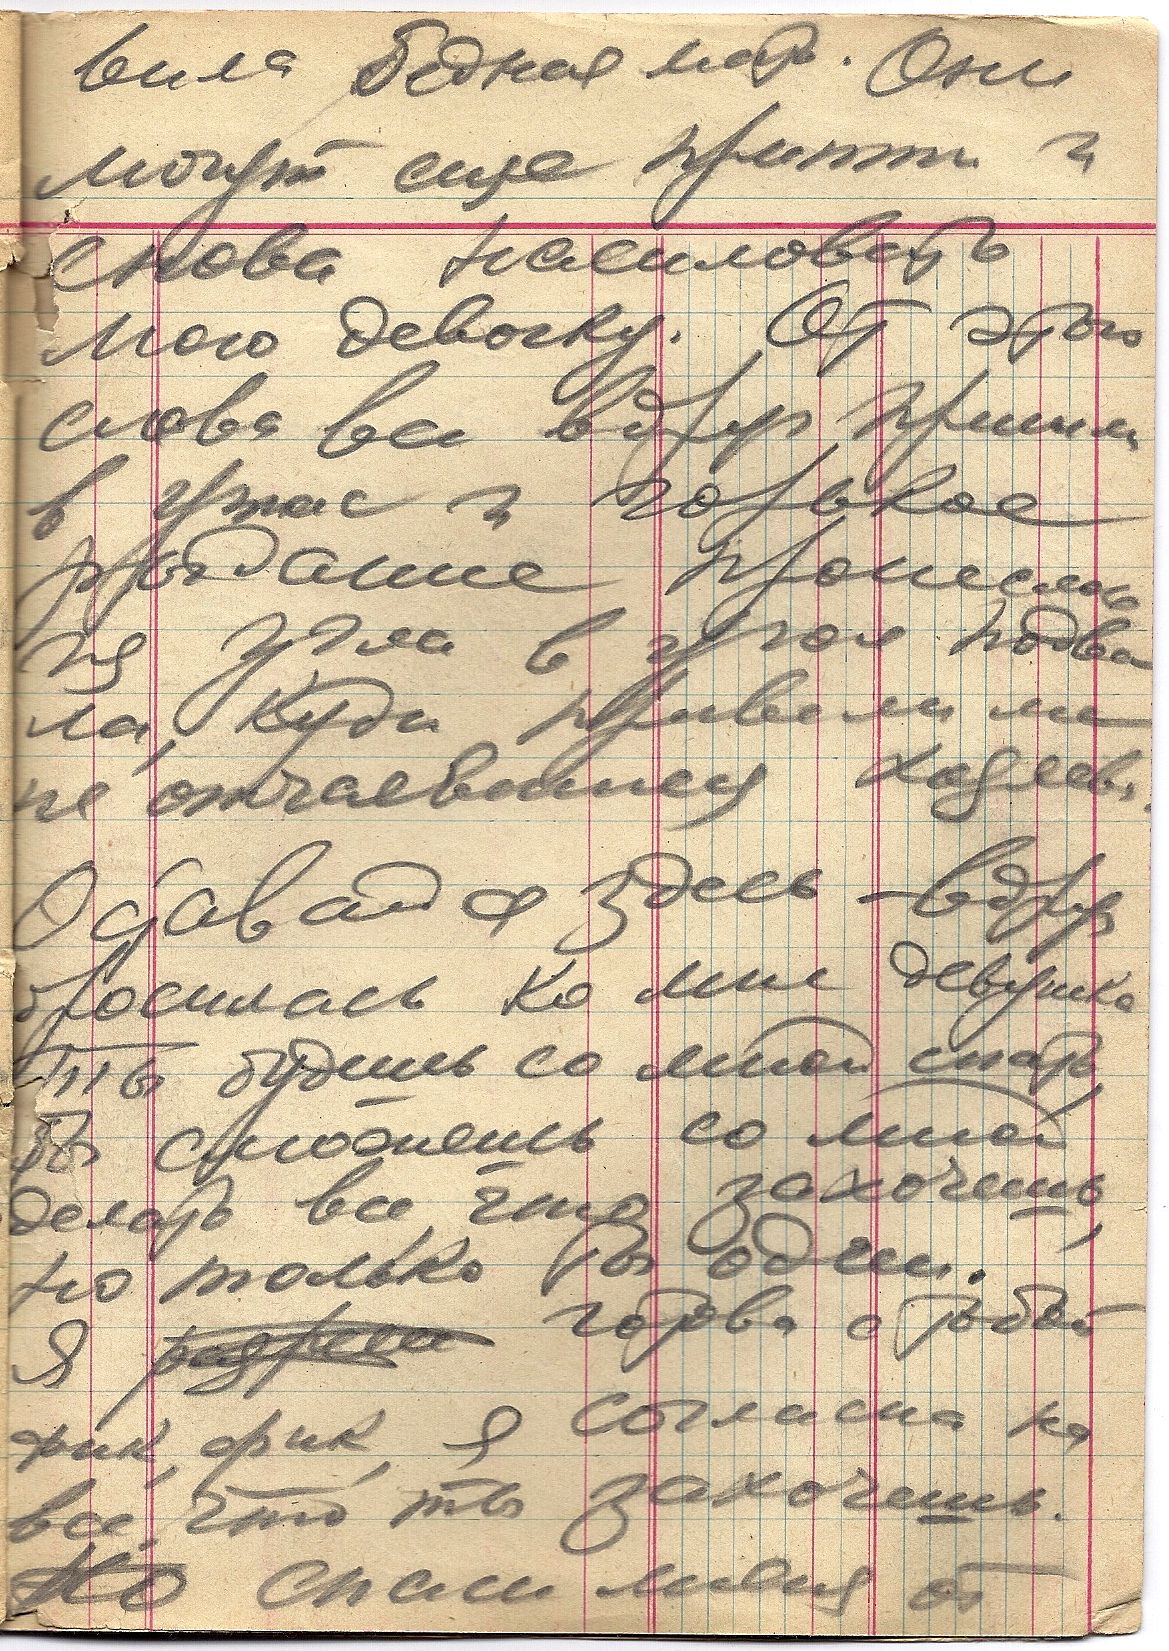 вила бедная мать. Они
могут еще притти и
снова насиловать
мою девочку. От этого
слова все вдруг пришли
в ужас и горькое
рыдание пронеслось
из угла в угол подва
ла, куда привели ме
ня отчаявшиеся хозяева.
Оставайся здесь – вдруг
бросилась ко мне девушка
Ты будешь со мной спать
Ты сможешь со мной
делать все, что захочешь,
но только ты один.
Я готова с тобой
фик фик, я согласна на
все, что ты захочешь.
Но спаси меня от